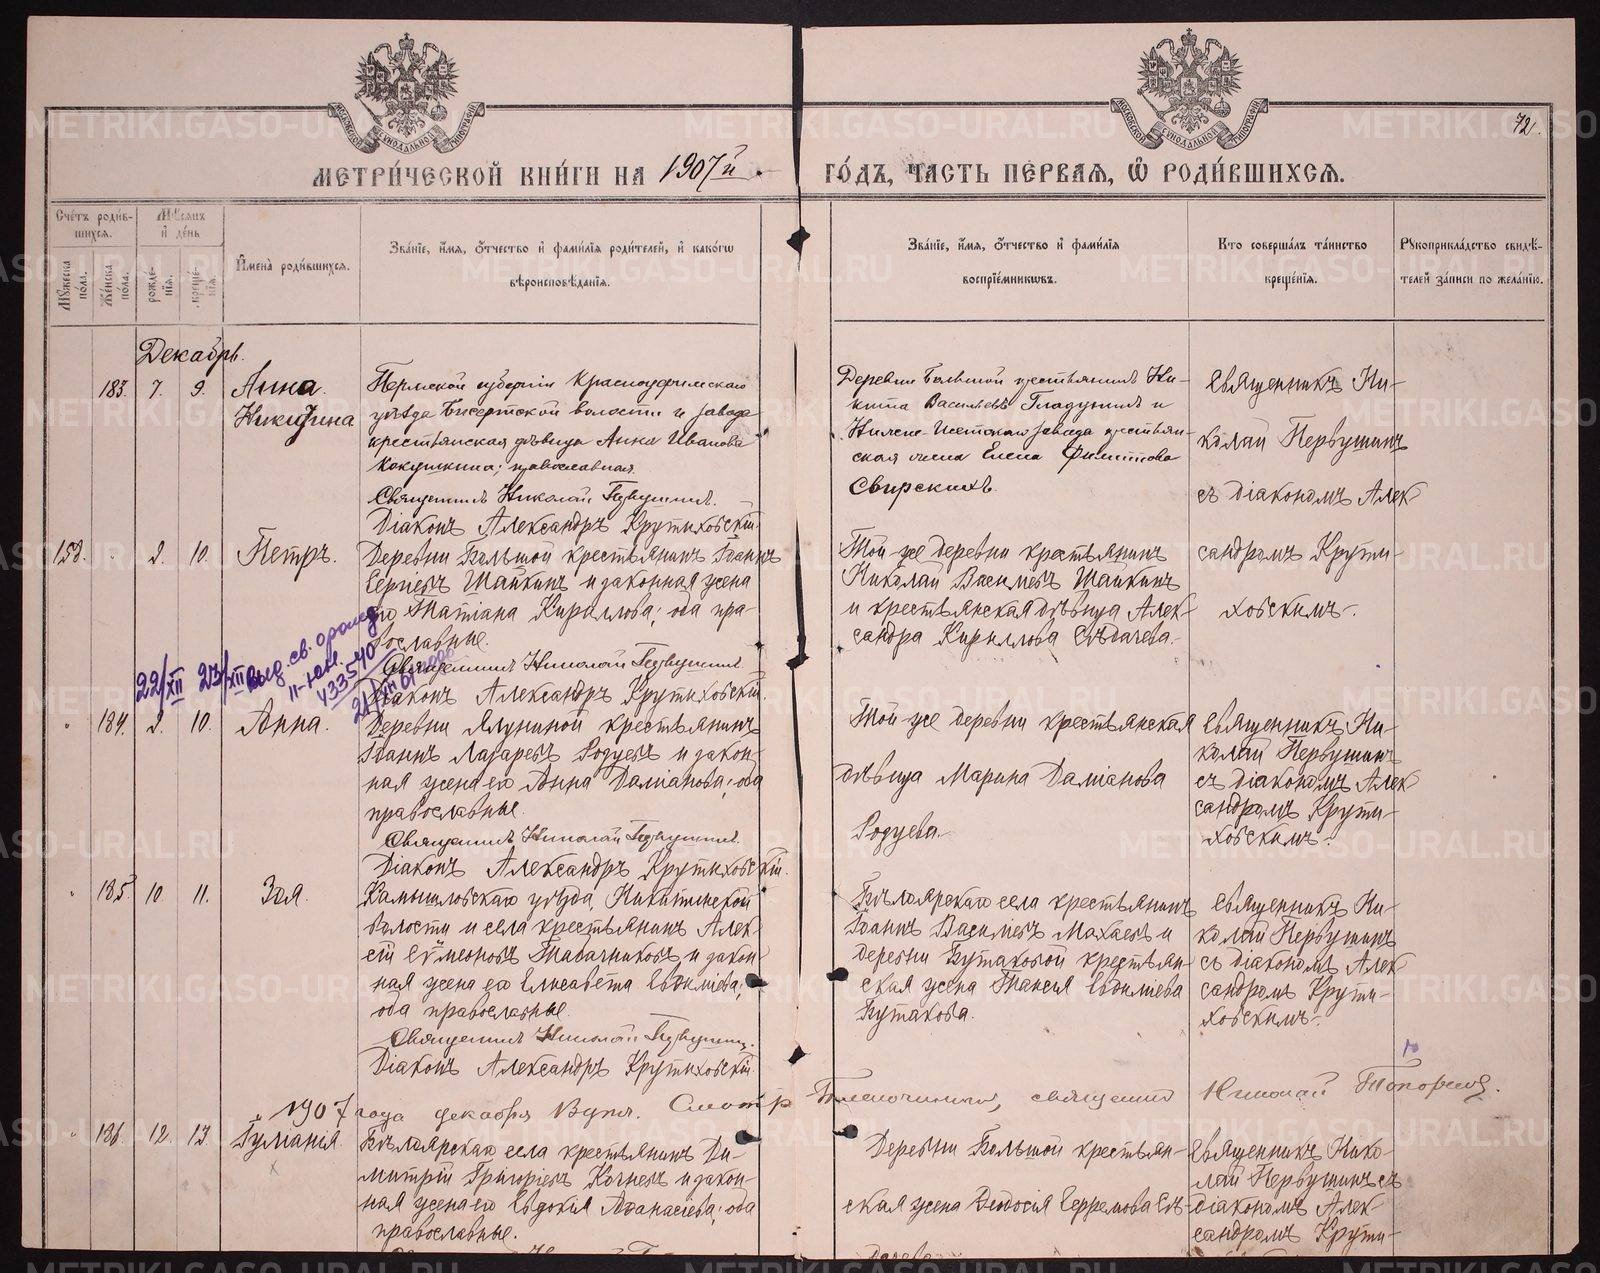 72.
МЕТРИ́ЧЕСКОЙ КНИ́ГИ НА 1907й ГО́ДЪ, ЧАСТЬ ПЕ́РВАЯ, Ѡ РОДИ́ВШИХСЯ.
Сче́тъ роди́в-
шихся.
Му́жеска по́ла.
Же́нска по́ла.
Мѣ́сяцъ и де́нь
рожде́-
нія.
креще́-
нія.
И҆мена̀ роди́вшихся.
Зва́ніе, и҆́мя, ѻ҆́тчество и҆ фами́лія роди́телей, и҆ како́гѡ
вѣроисповѣ́данія.
Зва́ніе, и҆́мя, ѻ҆́тчество и҆ фами́лія
воспріе́мниковъ.
Кто̀ соверша́лъ та́инство
креще́нія.
Рꙋкоприкла́дство свидѣ́-
телей за́писи по жела́нію.
Декабрь.
183. 7. 9. Анна
Никитина
Пермской губерніи Красноуфимскаго
уѣзда Бисертской волости и завода
крестьянская дѣвица Анна Иванова
Кокушкина; православная.
Священникъ Николай Первушинъ.
Діаконъ Александръ Крутиховскій.
Деревни Большой крестьянинъ Ни-
кита Васильевъ Гладунинъ и
Нижне-Исетскаго завода крестьян-
ская жена Елена Филиппова
Свирскихъ.
Священникъ Ни-
колай Первушинъ
съ діакономъ Алек-
сандромъ Крути-
ховскимъ.
158. 9. 10. Петръ.
Деревни Большой крестьянинъ Іоаннъ
Сергіевъ Шайкинъ и законная жена
его Татіана Кириллова; оба пра-
вославные.
Священникъ Николай Первушинъ.
Діаконъ Александръ Крутиховскій.
Той-же деревни крестьянинъ
Николай Васильевъ Шайкинъ
и крестьянская дѣвица Алек-
сандра Кириллова Сѣдачева.
22/XII 23/XII выд. св. о рожд.
433540
184. 9. 10. Анна.
Деревни Ялуниной крестьянинъ
Іоаннъ Лазаревъ Родуевъ и закон-
ная жена его Анна Даміанова; оба
православные.
Священникъ Николай Первушинъ.
Діаконъ Александръ Крутиховскій.
Той-же деревни крестьянская
дѣвица Марина Даміанова
Родуева.
Священникъ Ни-
колай Первушинъ
съ діакономъ Алек-
сандромъ Крути-
ховскимъ.
185. 10. 11. Зоя.
Камышловскаго уѣзда, Никитинской
волости и села крестьянинъ Алек-
сій Сѵмеоновъ Табачниковъ и закон-
ная жена его Елисавета Евѳиміева;
оба православные.
Священникъ Николай Первушинъ.
Діаконъ Александръ Крутиховскій.
Бѣлоярскаго села крестьянинъ
Іоаннъ Васильевъ Махаевъ и
деревни Бутаковой крестьян-
ская жена Таисія Евѳиміева
Бутакова.
Священникъ Ни-
колай Первушинъ
съ діакономъ Алек-
сандромъ Крути-
ховскимъ.
1907 года декабря дня. Смотр. Благочинный, священникъ Николай Топорковъ.
186. 12. 13. Іуліанія
Бѣлоярскаго села крестьянинъ Ди-
митрій Григоріевъ Кочневъ и закон-
ная жена его Евдокія Аѳанасіева; оба
православные.
Деревни Большой крестьян-
ская жена Ѳеодосія Ефремова Сѣ-
дачева
Священникъ Нико-
лай Первушинъ съ
діакономъ Алек-
сандромъ Крути-
METRIKI.GASO-URAL.RU